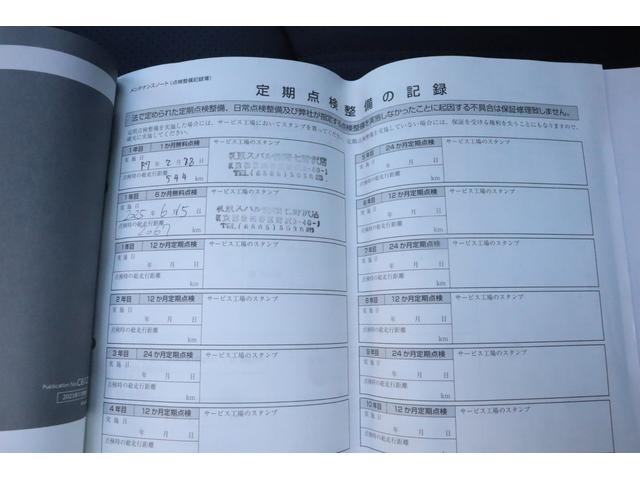 メンテナンスノート(点検整備記録簿)
定期点検整備の記録
法で定められた定期点検整備、日常点検整備及び弊社が指定する点検整備を実施しなかったことに起因する不具合は保証修理致しません。
1年目 1か月無料点検
サービス工場のスタンプ
実施日
R7年2月23日
点検時の総走行距離
544 km
1年目 6か月無料点検
サービス工場のスタンプ
実施日
2025年6月15日
点検時の総走行距離
2067 km
1年目 12か月定期点検
サービス工場のスタンプ
実施日
年 月 日
点検時の総走行距離
km
2年目 12か月定期点検
サービス工場のスタンプ
実施日
年 月 日
点検時の総走行距離
km
3年目 24か月定期点検
サービス工場のスタンプ
実施日
年 月 日
点検時の総走行距離
km
4年目 12か月定期点検
サービス工場のスタンプ
実施日
年 月 日
点検時の総走行距離
km
5年目 24か月定期点検
サービス工場のスタンプ
実施日
年 月 日
点検時の総走行距離
km
6年目 12か月定期点検
サービス工場のスタンプ
実施日
年 月 日
点検時の総走行距離
km
7年目 24か月定期点検
サービス工場のスタンプ
実施日
年 月 日
点検時の総走行距離
km
8年目 12か月定期点検
サービス工場のスタンプ
実施日
年 月 日
点検時の総走行距離
km
9年目 24か月定期点検
サービス工場のスタンプ
実施日
年 月 日
点検時の総走行距離
km
10年目 12か月定期点検
サービス工場のスタンプ
実施日
年 月 日
点検時の総走行距離
km
Publication No.